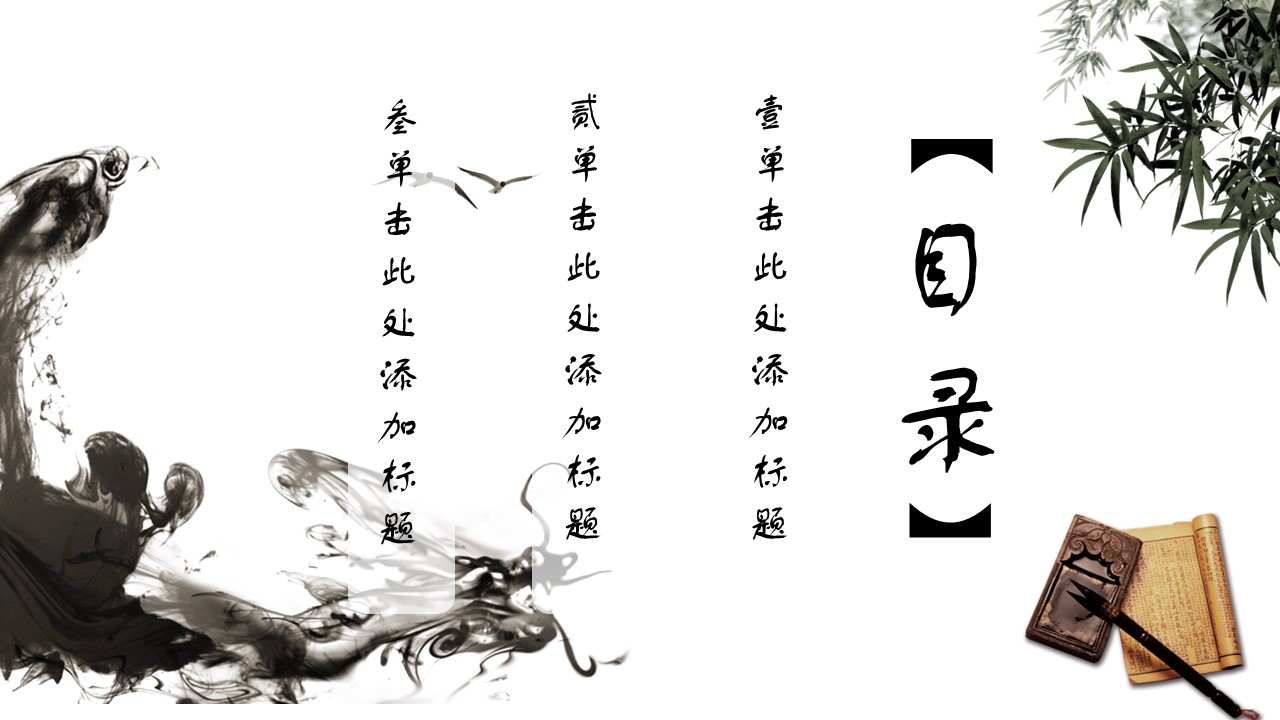 【目录】
壹单击此处添加标题
贰单击此处添加标题
叁单击此处添加标题